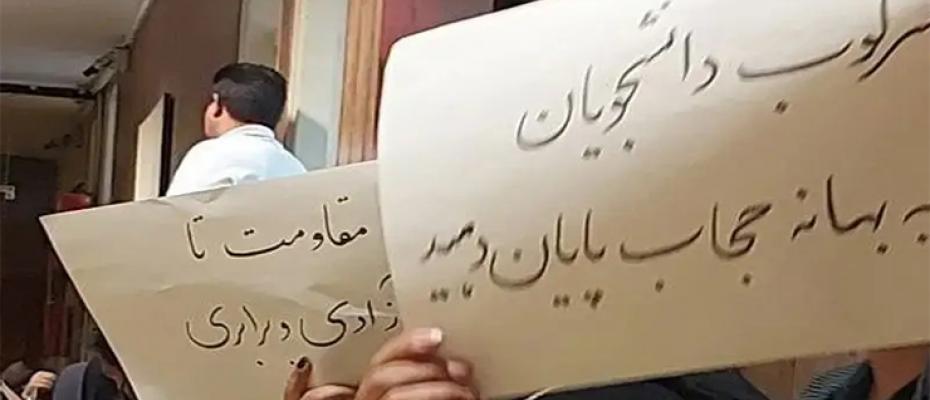 سرکوب دانشجویان
به بهانه حجاب پایان دهید
مقاومت تا
آزادی و برابری